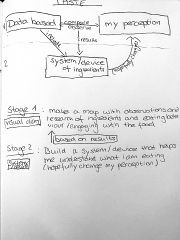 TASTE
Data based
compare
observe
my perception
results
results
2
system/device
of ingredients
Stage 1 : make a map with observations and
research of ingredients and eating beha
viour/engaging with the food
visual diary
based on results
Stage 2 : Build a system/device that helps
me understand what I am eating
(hopefully change my perception)